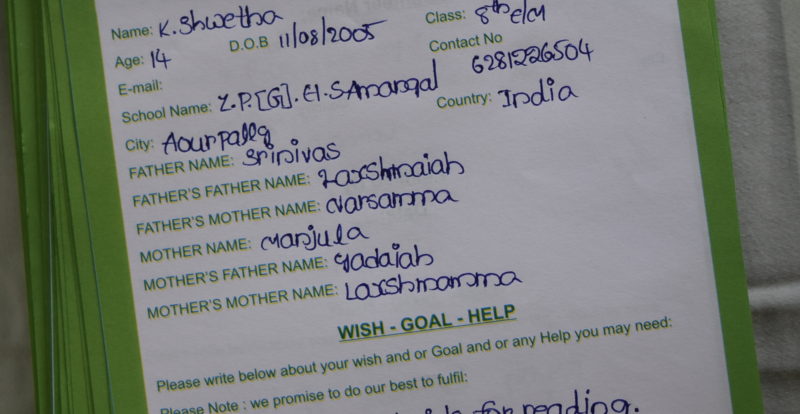 Name: K. Shwetha Class: 8th E/M
Age: 14 D.O.B 11/08/2005 Contact No
E-mail: 6281226504
School Name: Z.P.[G].H.S Amangal Country: India
City: Aourpally
FATHER NAME: Srinivas
FATHER'S FATHER NAME: Laxshmaiah
FATHER'S MOTHER NAME: Narsamma
MOTHER NAME: Manjula
MOTHER'S FATHER NAME: Yadaiah
MOTHER'S MOTHER NAME: Laxshmamma
WISH - GOAL - HELP
Please write below about your wish and or Goal and or any Help you may need:
Please Note : we promise to do our best to fulfil:
for reading.